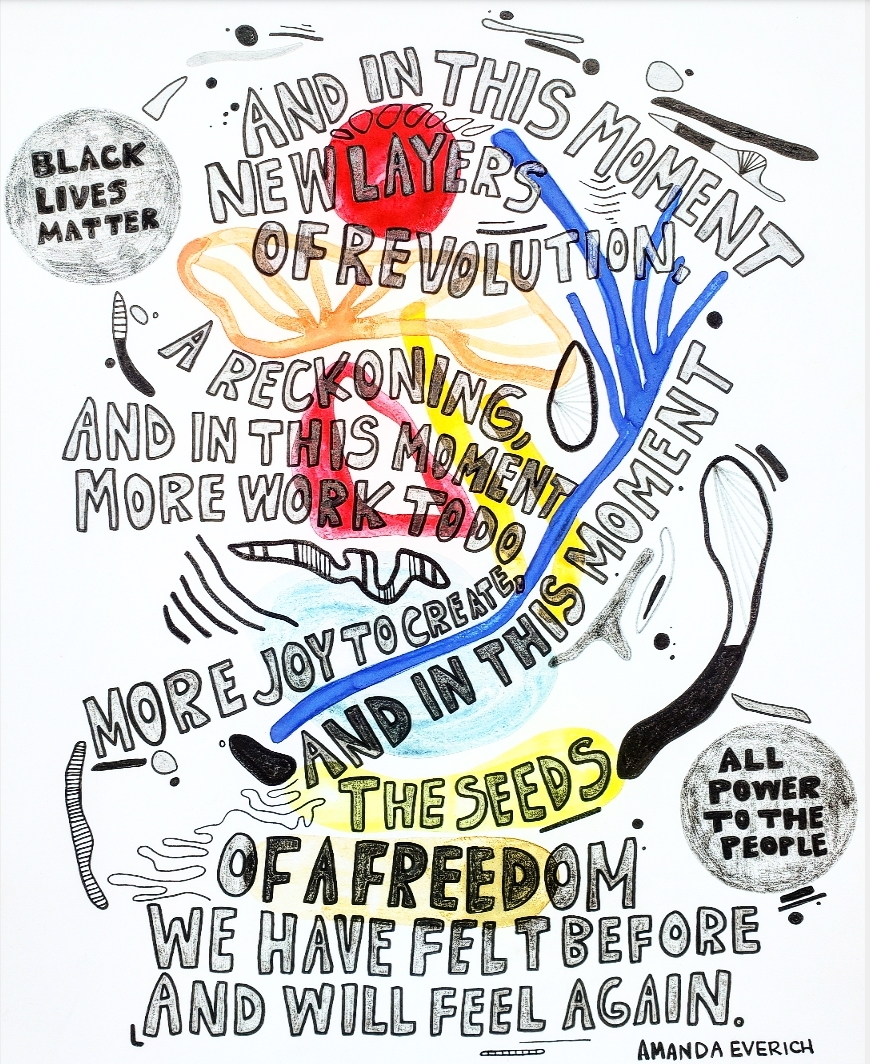 AND IN THIS MOMENT
NEW LAYERS
OF REVOLUTION,
BLACK
LIVES
MATTER
A RECKONING,
AND IN THIS MOMENT
MORE WORK TO DO
MORE JOY TO CREATE,
AND IN THIS MOMENT
THE SEEDS
OF A FREEDOM
WE HAVE FELT BEFORE
AND WILL FEEL AGAIN.
ALL
POWER
TO THE
PEOPLE
AMANDA EVERICH